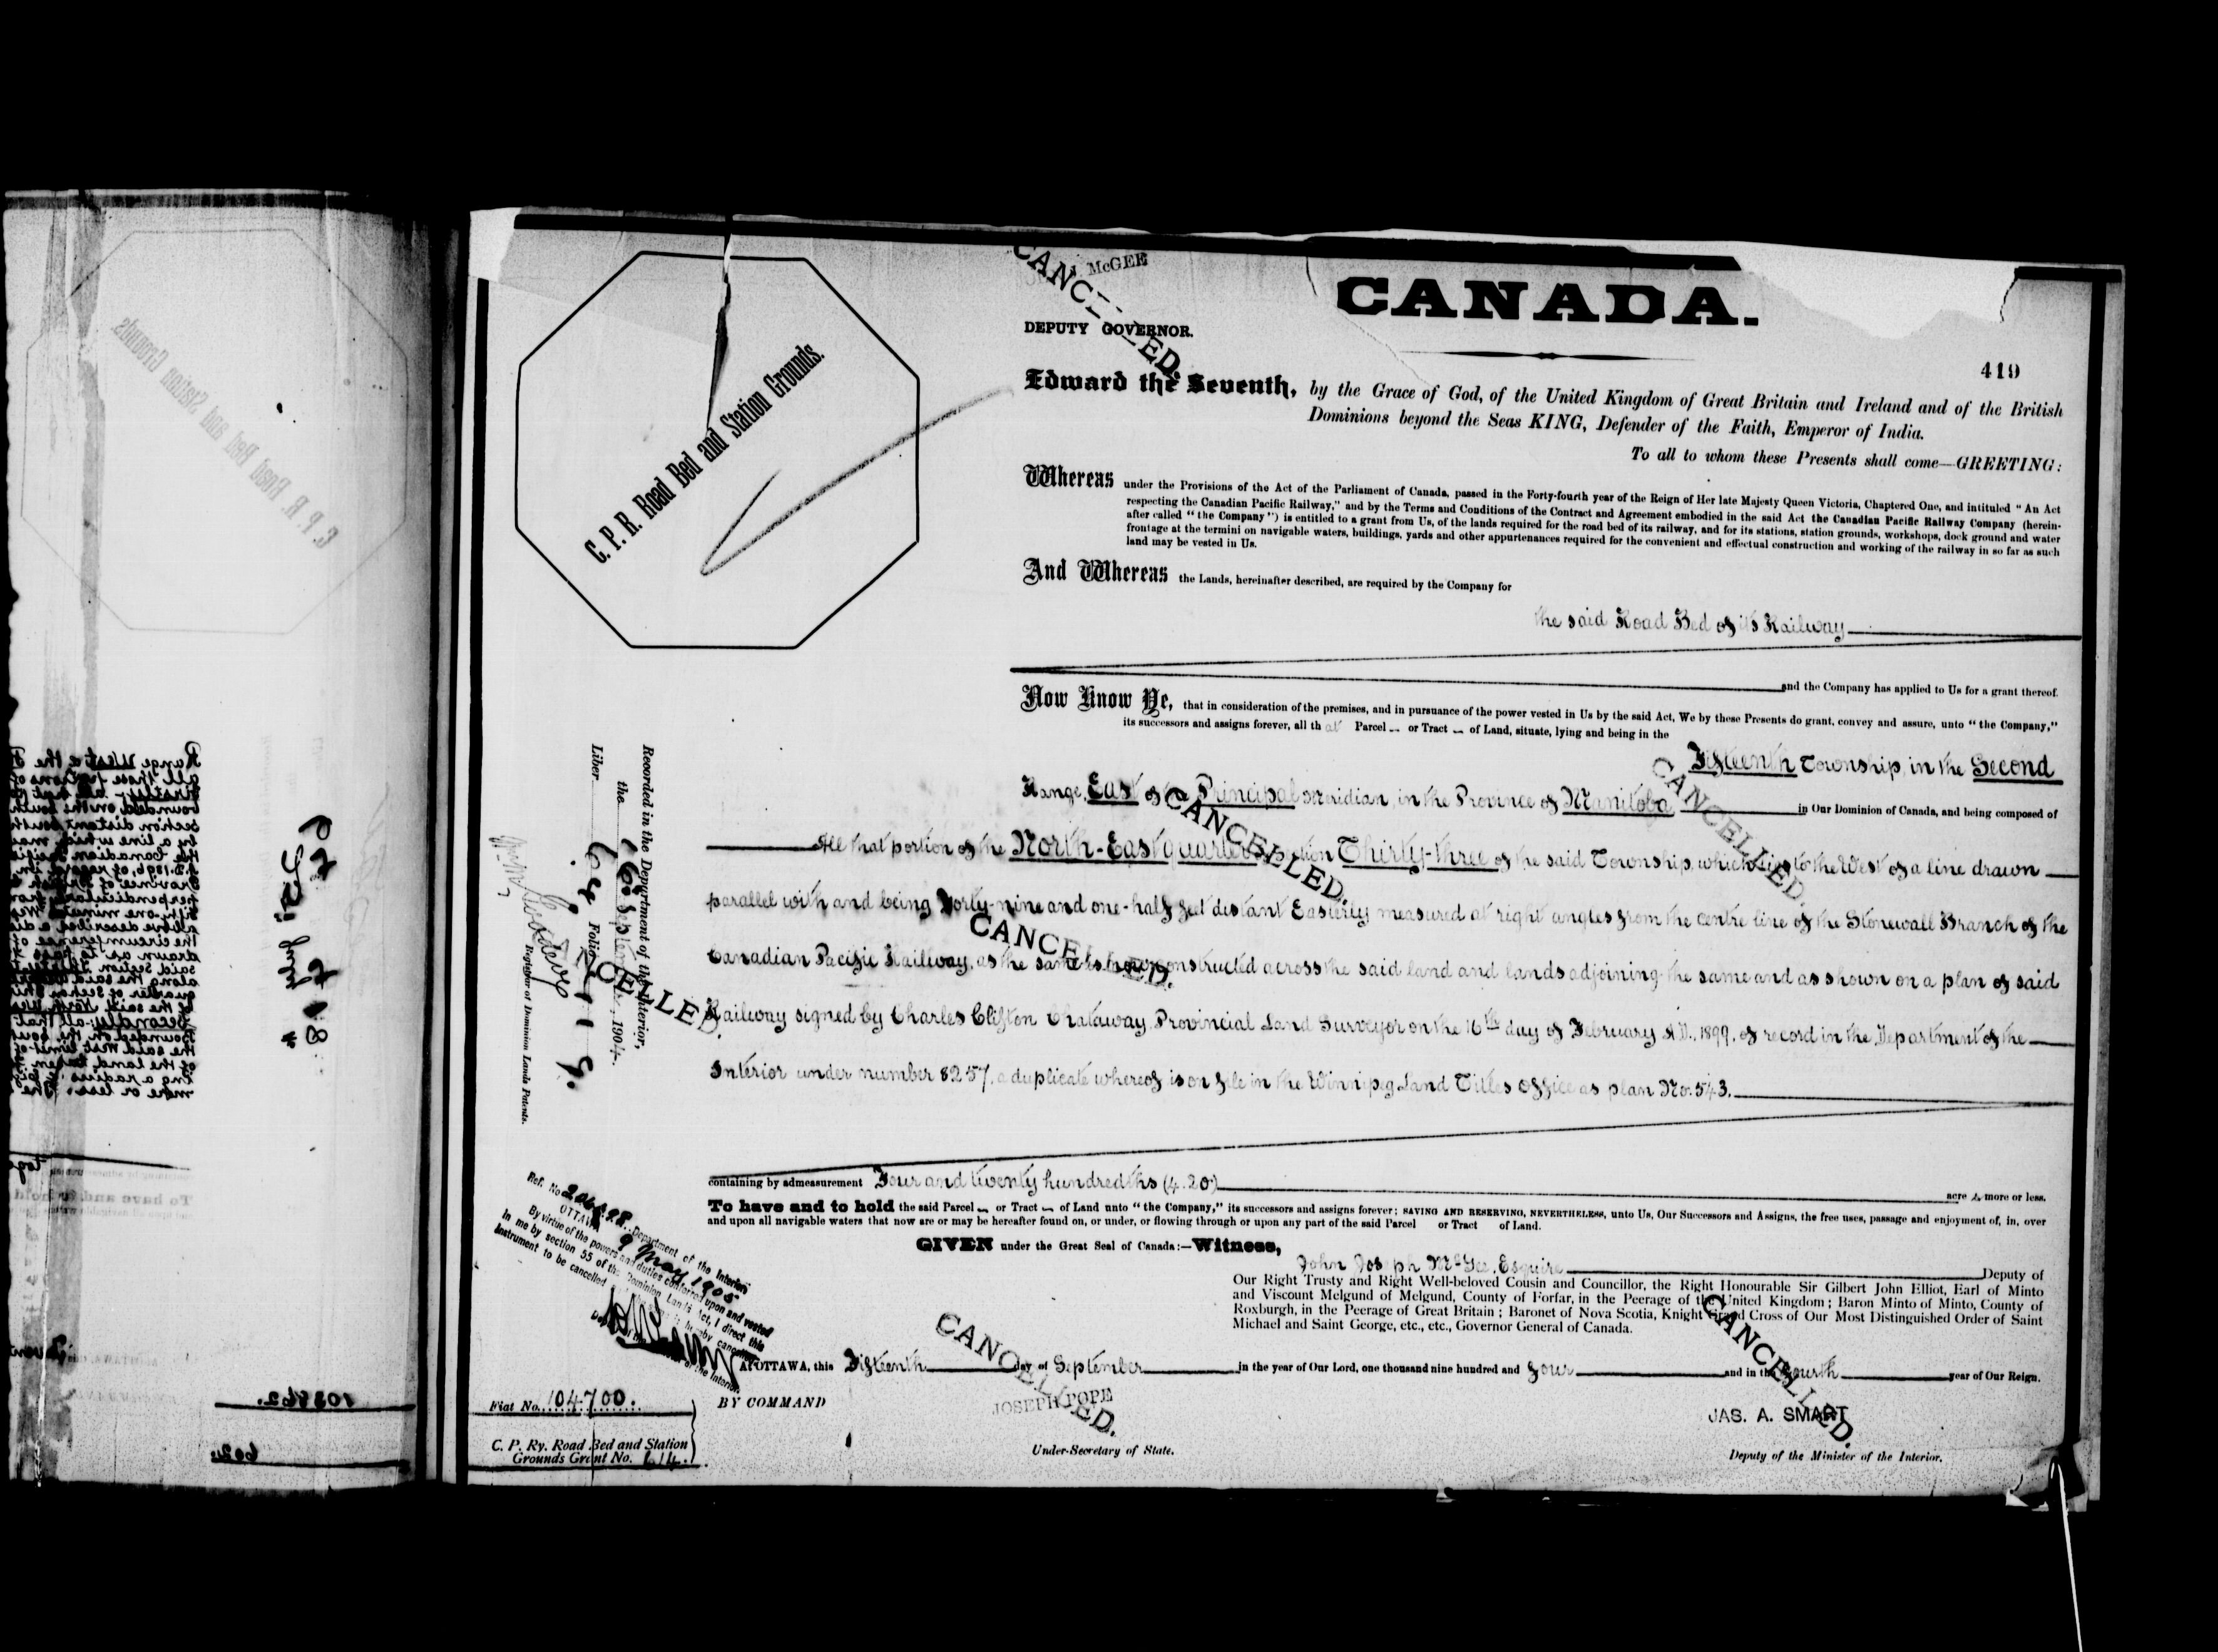 J. McGEE
CANCELLED.
DEPUTY GOVERNOR.
CANADA.
419
C. P. R. Road Bed and Station Grounds.
Edward the Seventh, by the Grace of God, of the United Kingdom of Great Britain and Ireland and of the British
Dominions beyond the Seas KING, Defender of the Faith, Emperor of India.
To all to whom these Presents shall come—GREETING:
Whereas under the Provisions of the Act of the Parliament of Canada, passed in the Forty-fourth year of the Reign of Her late Majesty Queen Victoria, Chaptered One, and intituled "An Act
respecting the Canadian Pacific Railway," and by the Terms and Conditions of the Contract and Agreement embodied in the said Act the Canadian Pacific Railway Company (herein-
after called "the Company") is entitled to a grant from Us, of the lands required for the road bed of its railway, and for its stations, station grounds, workshops, dock ground and water
frontage at the termini on navigable waters, buildings, yards and other appurtenances required for the convenient and effectual construction and working of the railway in so far as such
land may be vested in Us.
And Whereas the Lands, hereinafter described, are required by the Company for
the said Road Bed of its Railway
and the Company has applied to Us for a grant thereof.
Now Know Ye, that in consideration of the premises, and in pursuance of the power vested in Us by the said Act, We by these Presents do grant, convey and assure, unto "the Company,"
its successors and assigns forever, all that Parcel or Tract of Land, situate, lying and being in the
Fifteenth Township, in the Second
Range, East of the Principal Meridian, in the Province of Manitoba in Our Dominion of Canada, and being composed of
CANCELLED.
CANCELLED.
All that portion of the North-East quarter of Section Thirty-three of the said Township, which lies to the West of a line drawn
parallel with and being Forty-nine and one-half feet distant Easterly measured at right angles from the centre line of the Stonewall Branch of the
CANCELLED.
Canadian Pacific Railway, as the same is now constructed across the said land and lands adjoining the same and as shown on a plan of said
CANCELLED.
Railway signed by Charles Clifton Chataway, Provincial Land Surveyor on the 16th day of February A.D. 1899, of record in the Department of the
Interior under number 8257, a duplicate whereof is on file in the Winnipeg Land Titles Office as plan No. 543.
Recorded in the Department of the Interior,
the 16 September, 1904.
Liber Folio 419.
Registrar of Dominion Lands Patents.
containing by admeasurement Four and twenty hundredths (4.20) acres more or less.
To have and to hold the said Parcel or Tract of Land unto "the Company," its successors and assigns forever; SAVING AND RESERVING, NEVERTHELESS, unto Us, Our Successors and Assigns, the free uses, passage and enjoyment of, in, over
and upon all navigable waters that now are or may be hereafter found on, or under, or flowing through or upon any part of the said Parcel or Tract of Land.
GIVEN under the Great Seal of Canada:—Witness,
John Joseph McGee, Esquire Deputy of
Our Right Trusty and Right Well-beloved Cousin and Councillor, the Right Honourable Sir Gilbert John Elliot, Earl of Minto
and Viscount Melgund of Melgund, County of Forfar, in the Peerage of the United Kingdom; Baron Minto of Minto, County of
Roxburgh, in the Peerage of Great Britain; Baronet of Nova Scotia, Knight Grand Cross of Our Most Distinguished Order of Saint
Michael and Saint George, etc., etc., Governor General of Canada.
Ref. No. 206898. Department of the Interior
OTTAWA 9 May 1905
By virtue of the powers and duties conferred upon and vested
in me by section 55 of the Dominion Lands Act, I direct this
Instrument to be cancelled
CANCELLED.
CANCELLED.
AT OTTAWA, this Fifteenth day of September in the year of Our Lord, one thousand nine hundred and four and in the Fourth year of Our Reign.
BY COMMAND
JOSEPH POPE
Under-Secretary of State.
JAS. A. SMART
Deputy of the Minister of the Interior.
Fiat No. 104700.
C. P. Ry. Road Bed and Station
Grounds Grant No. 614.